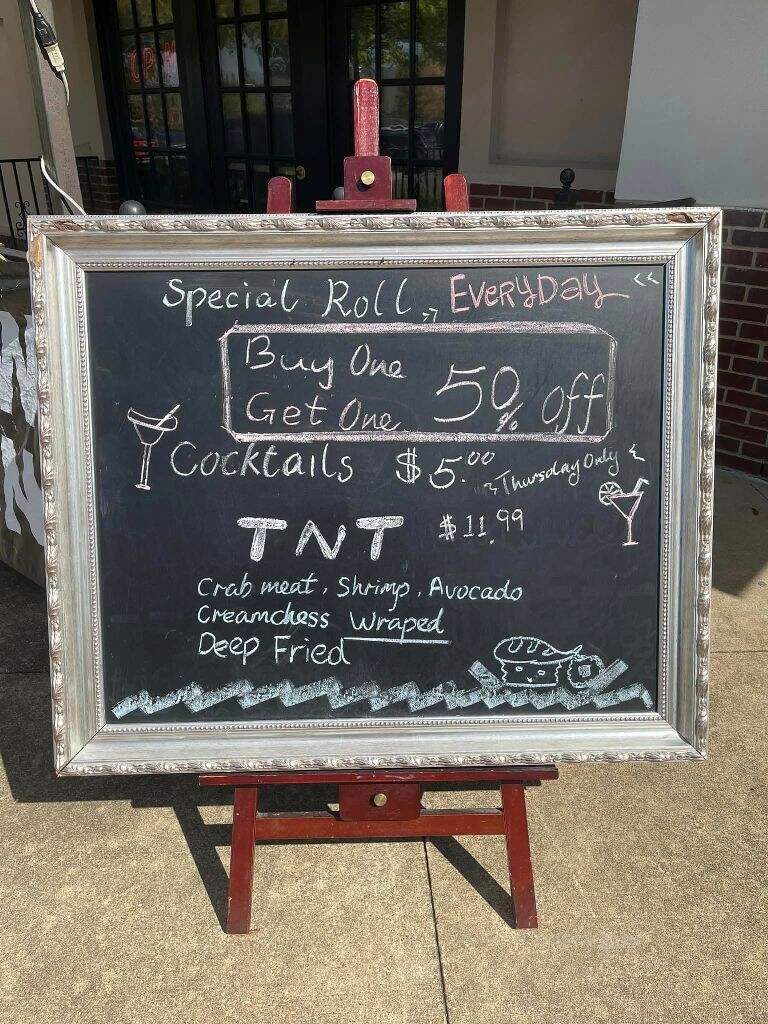 OPEN
Special Roll >> EVERYDAY <<
Buy One
Get One 50% off
Cocktails $5.00 ~Thursday Only~
TNT $11.99
Crab meat, Shrimp, Avocado
Creamchess Wraped
Deep Fried